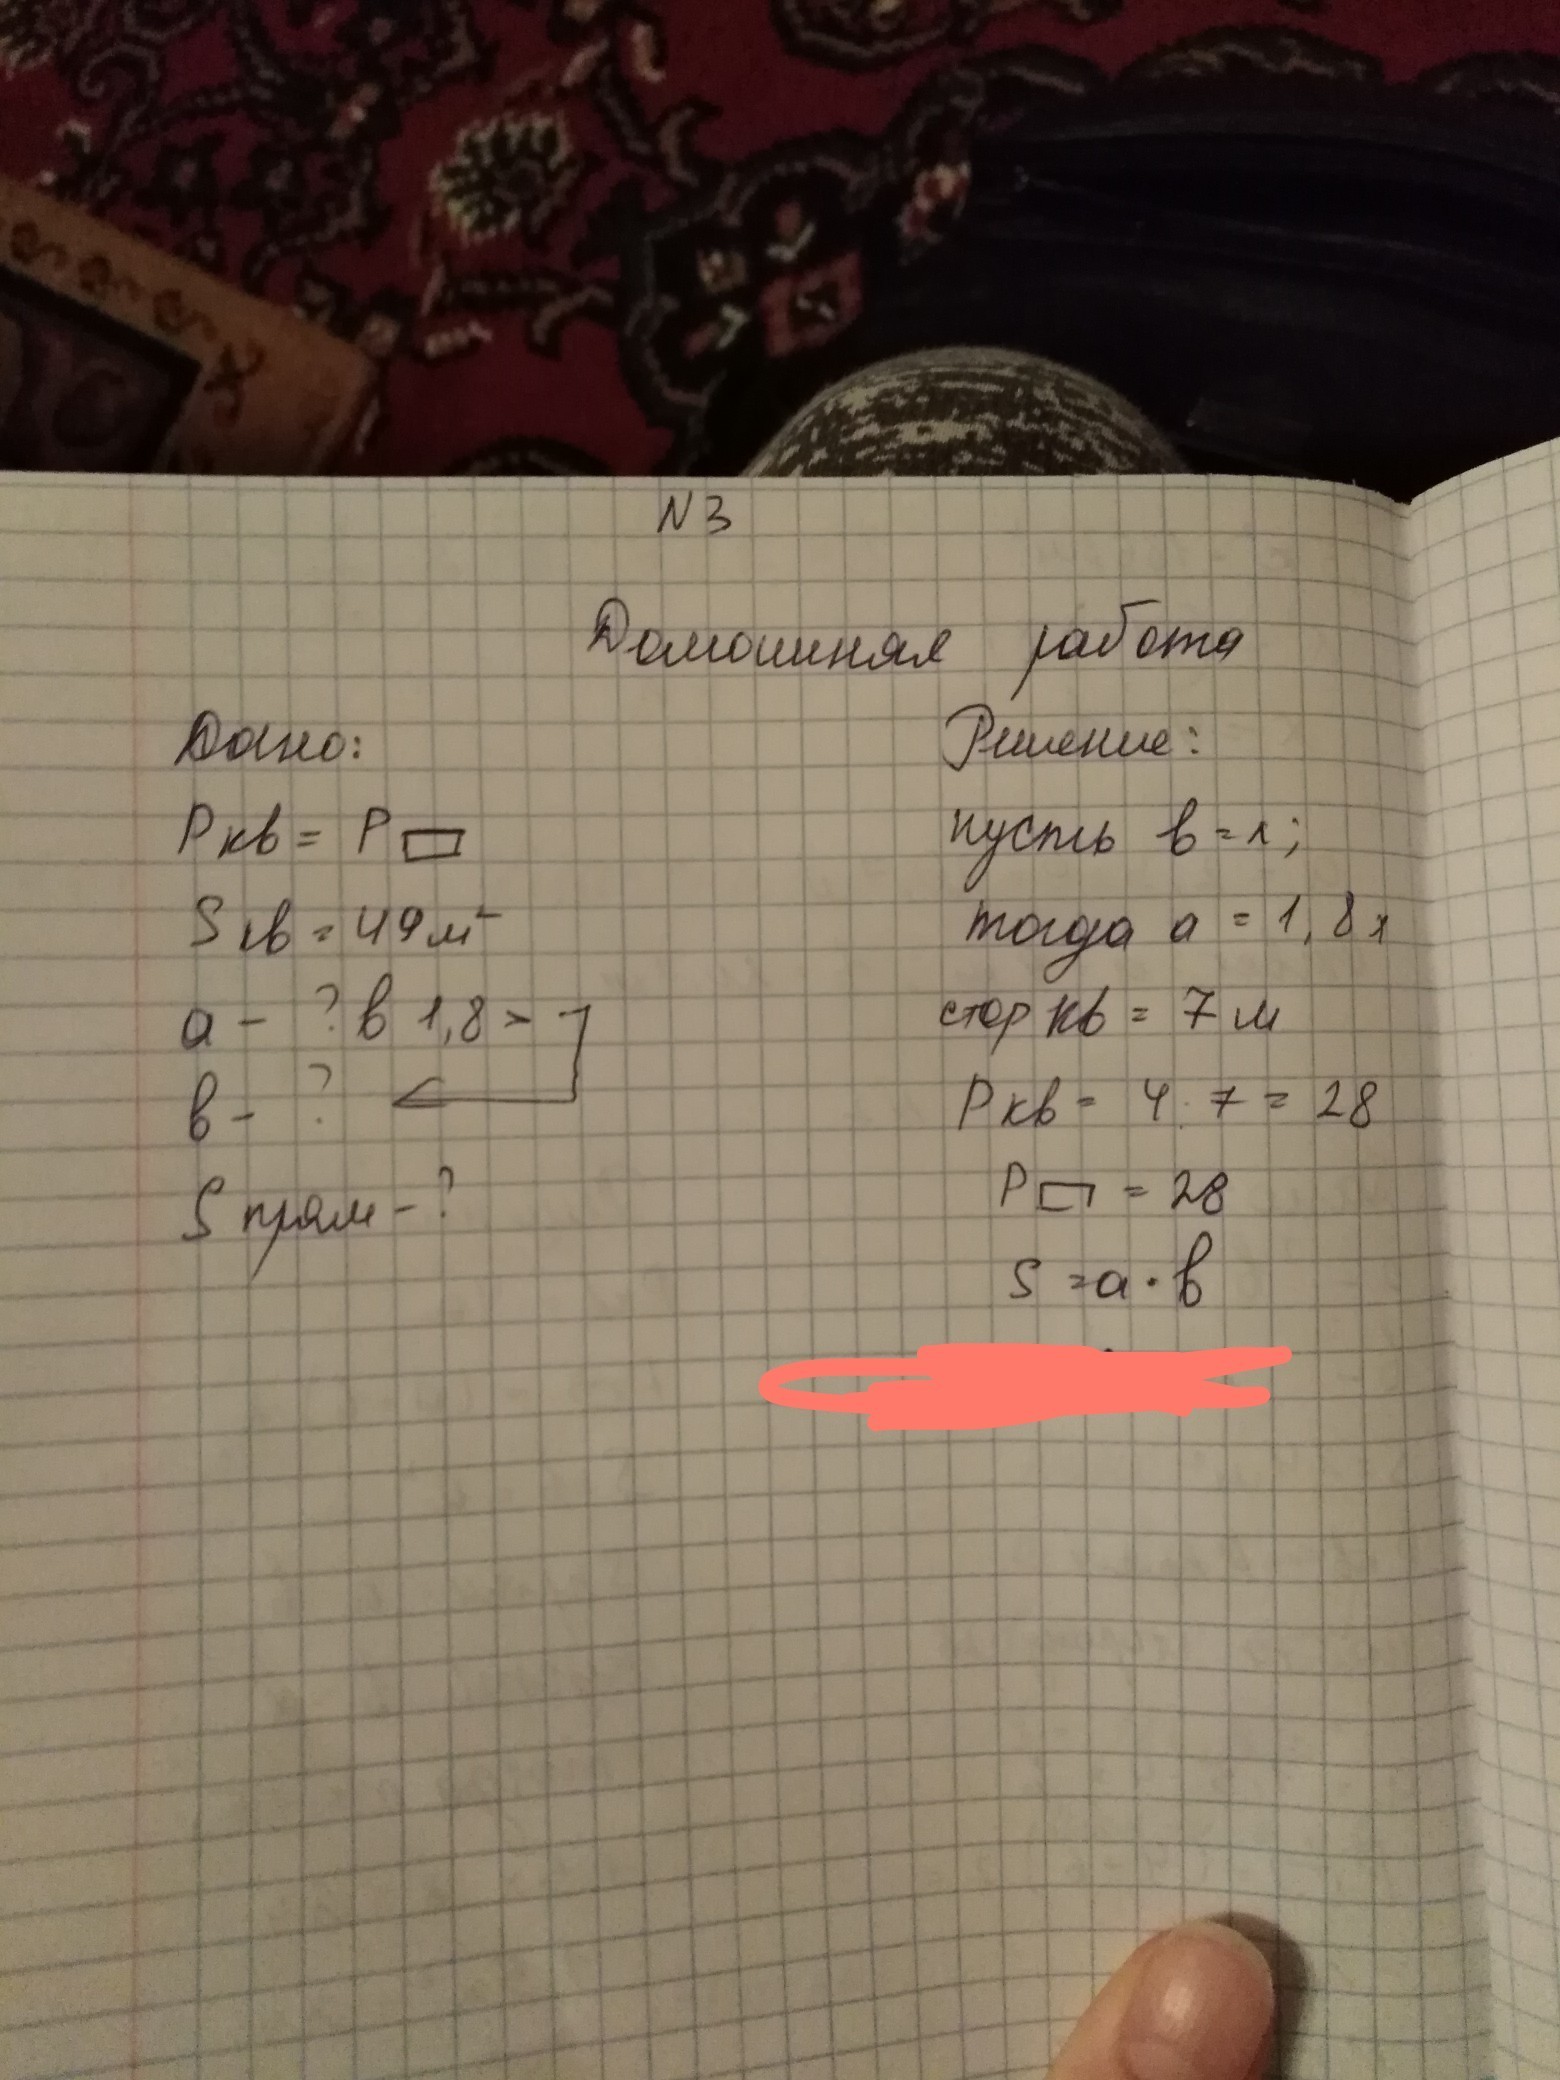 N 3
Домошняя работа
Дано:
Р кв = Р
S кв = 49 м²
а - ? в 1,8 >
в - ?
S прям - ?
Решение:
пусть в = х;
тогда а = 1,8 х
стор кв = 7 м
Р кв = 4 · 7 = 28
Р = 28
S = а · в